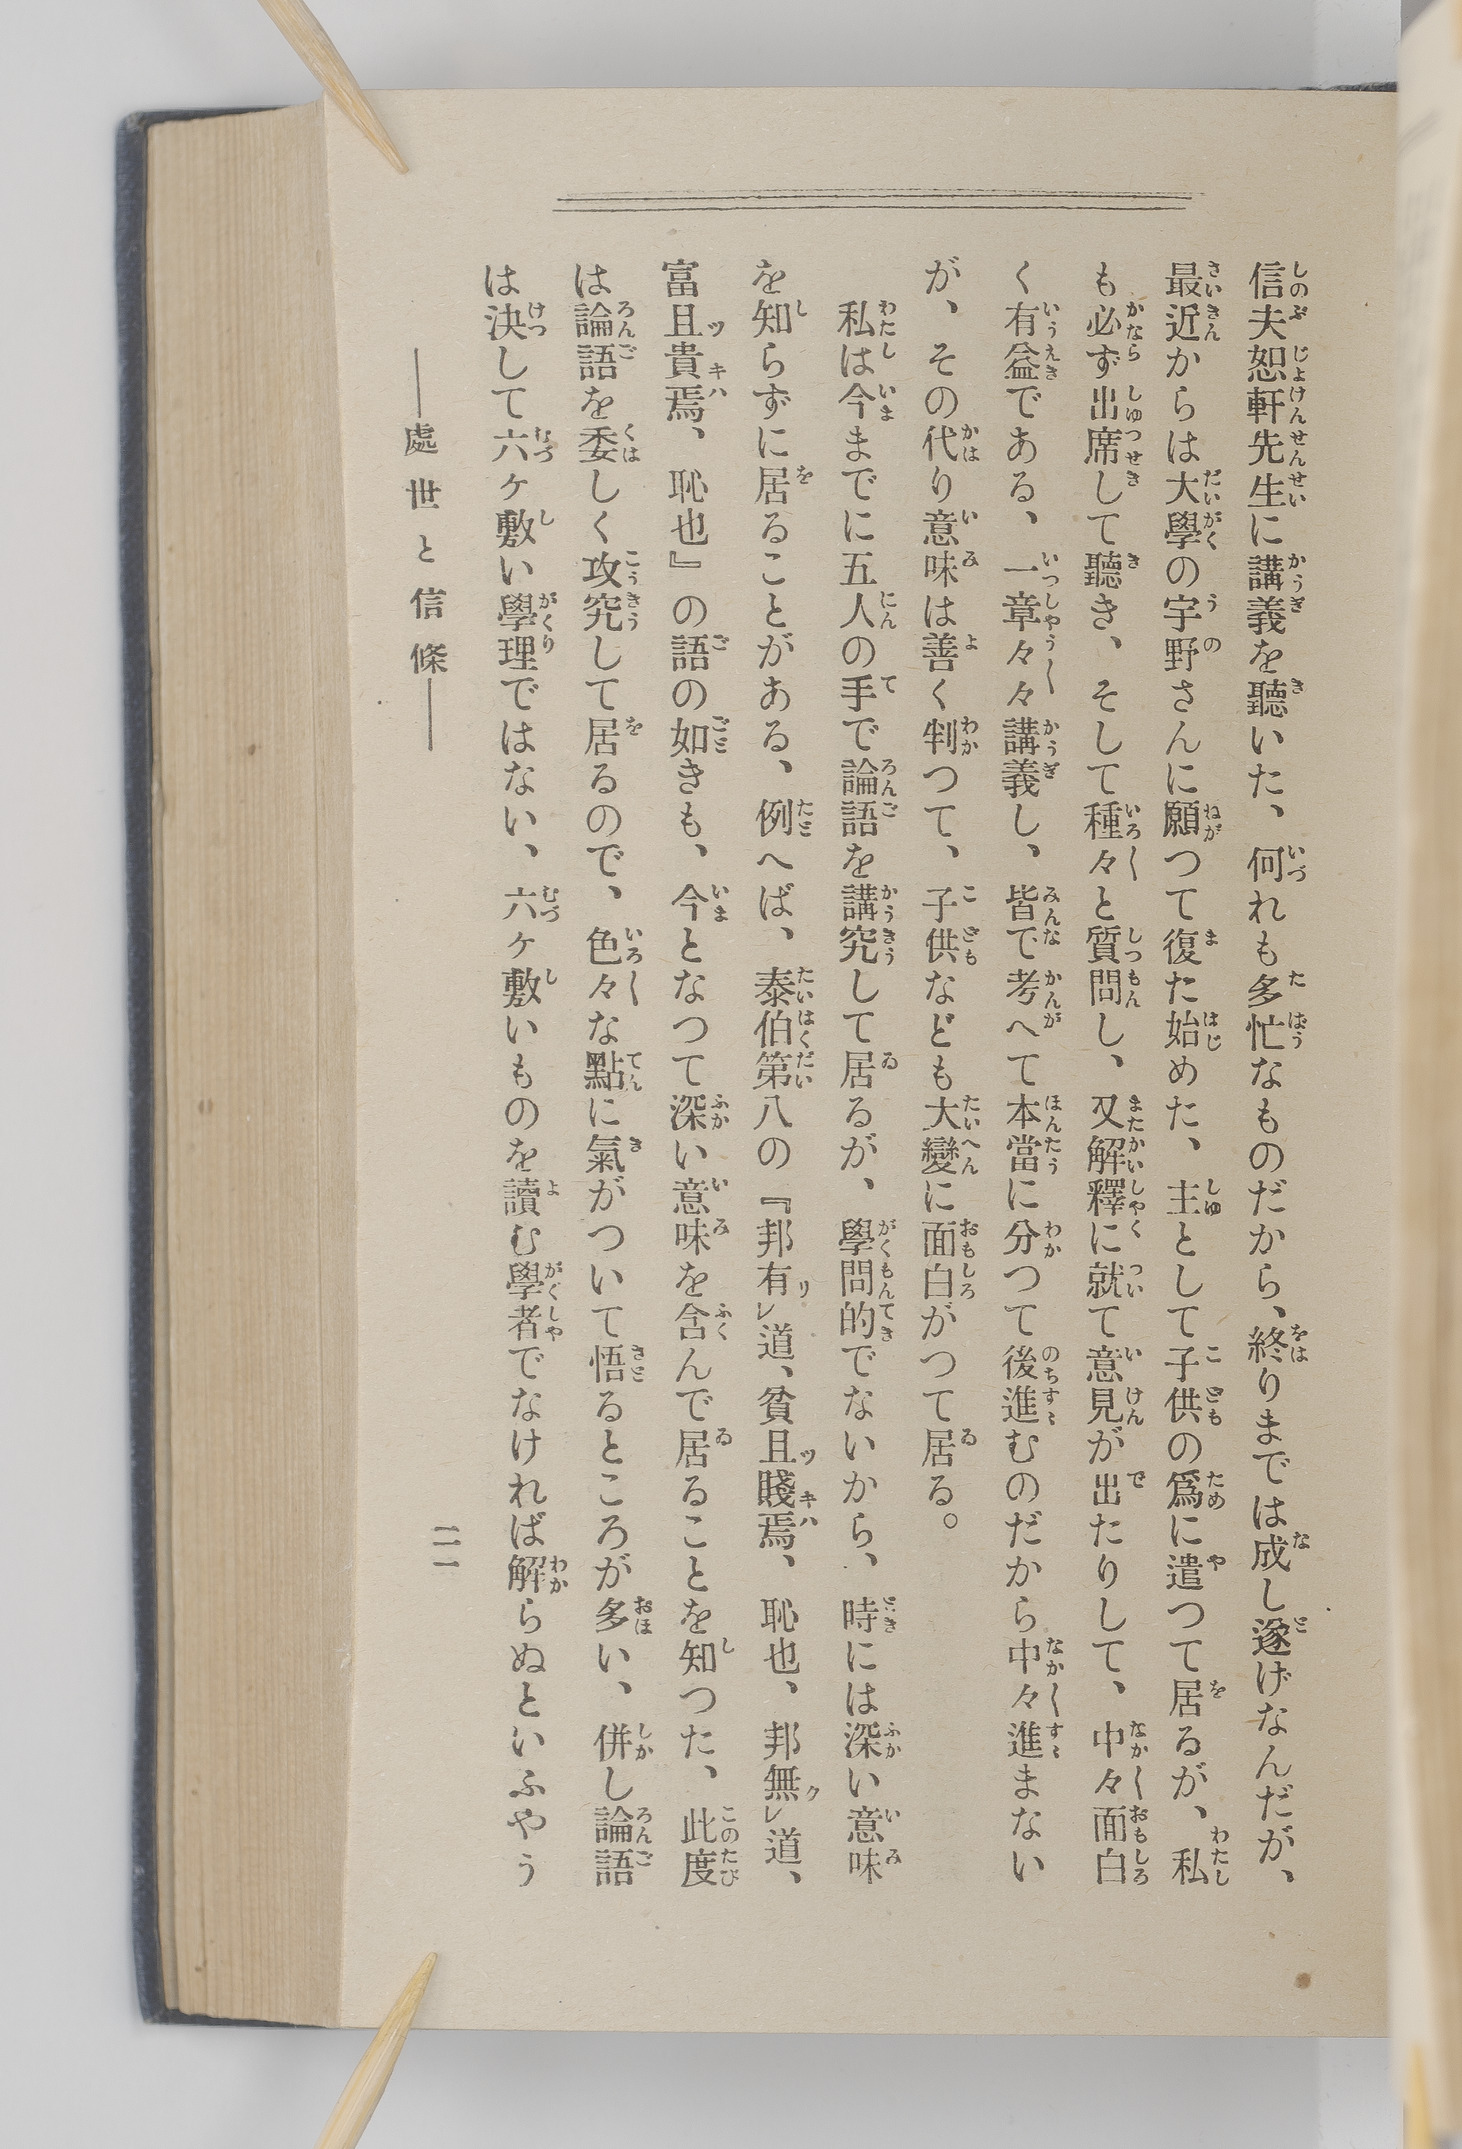 信夫恕軒先生に講義を聽いた、何れも多忙なものだから、終りまでは成し遂げなんだが、
最近からは大學の宇野さんに願つて復た始めた、主として子供の爲に遣つて居るが、私
も必ず出席して聽き、そして種々と質問し、又解釋に就て意見が出たりして、中々面白
く有益である、一章々々講義し、皆で考へて本當に分つて後進むのだから中々進まない
が、その代り意味は善く判つて、子供なども大變に面白がつて居る。
私は今までに五人の手で論語を講究して居るが、學問的でないから、時には深い意味
を知らずに居ることがある、例へば、泰伯第八の『邦有リレ道、貧且ツ賤キハ焉、恥也、邦無クレ道、
富且ツ貴キハ焉、恥也』の語の如きも、今となつて深い意味を含んで居ることを知つた、此度
は論語を委しく攻究して居るので、色々な點に氣がついて悟るところが多い、併し論語
は決して六ヶ敷い學理ではない、六ヶ敷いものを讀む學者でなければ解らぬといふやう
―處世と信條―
二一